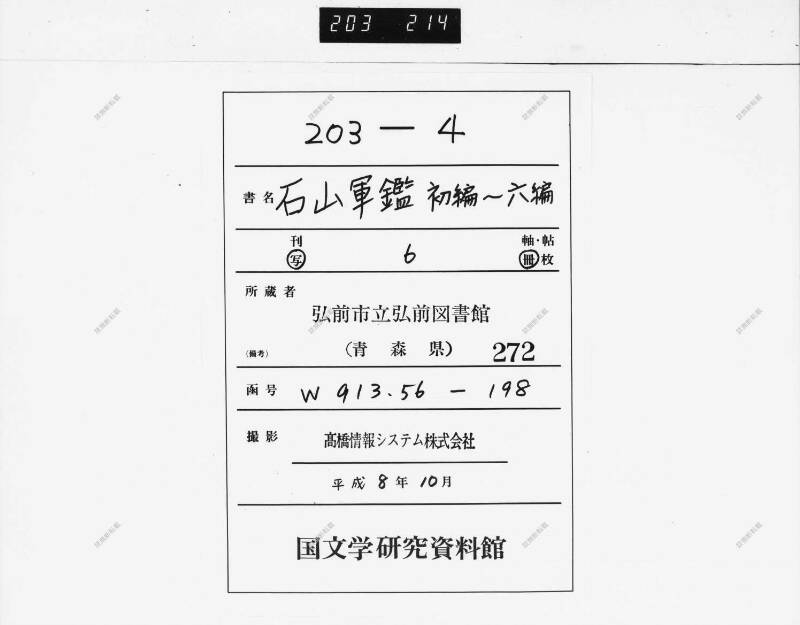 203 214
203 — 4
書名 石山軍鑑 初編～六編
刊 軸・帖
写 6 冊 枚
所蔵者
弘前市立弘前図書館
(備考) (青森県) 272
函号 W 913.56 — 198
撮影 髙橋情報システム株式会社
平成 8 年 10 月
国文学研究資料館